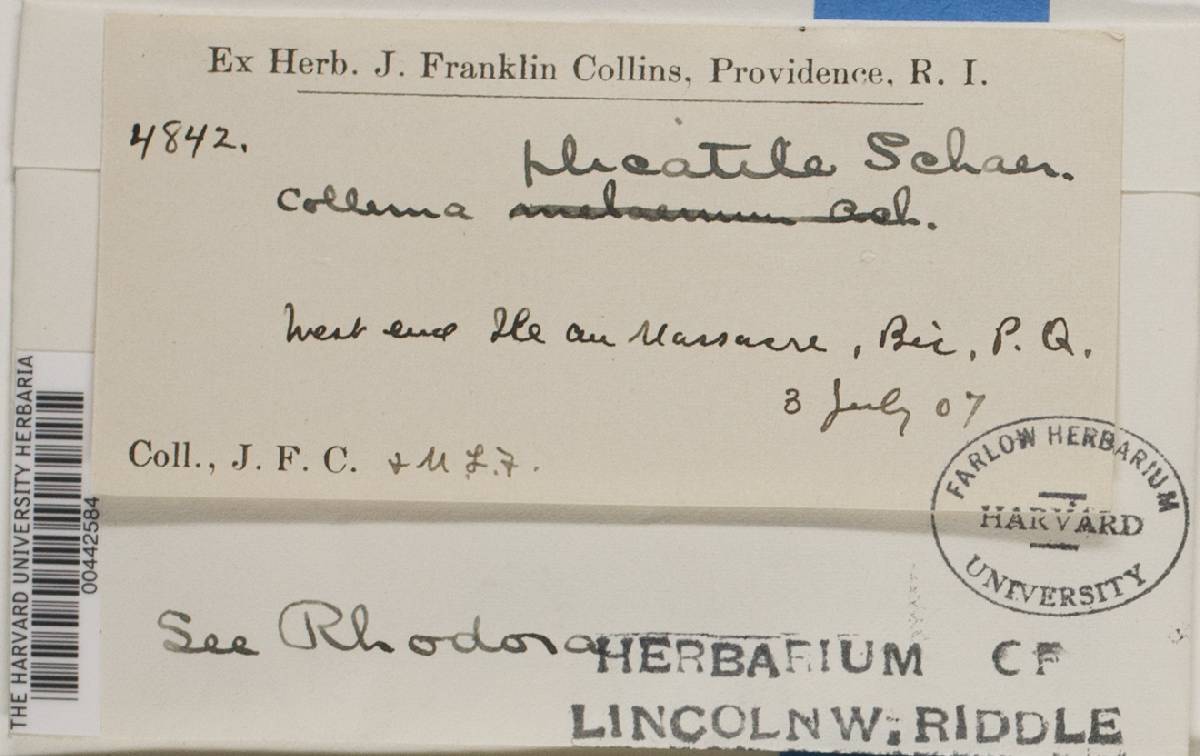 Ex Herb. J. Franklin Collins, Providence, R. I.
4842.
plicatile Schaer.
Collema melaenum Ach.
West end Ile au Massacre, Bic, P. Q.
3 July 07
Coll., J. F. C. & M L. F.
FARLOW HERBARIUM
HARVARD
UNIVERSITY
THE HARVARD UNIVERSITY HERBARIA
00442584
See Rhodora
HERBARIUM OF
LINCOLN W. RIDDLE